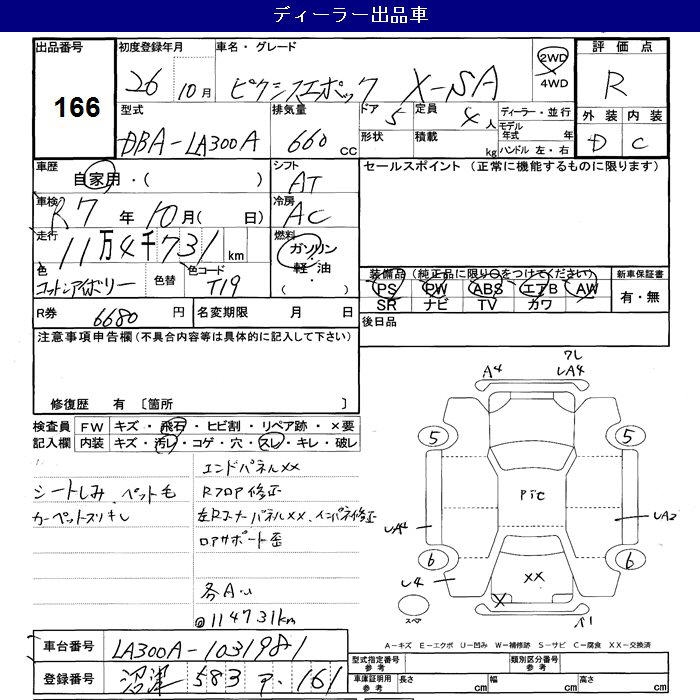 ディーラー出品車
出品番号 初度登録年月 車名・グレード 評価点
166 26 10月 ピクシスエポック X-SA 2WD 4WD R
型式 排気量 ドア 定員 ディーラー・並行 外装 内装
DBA-LA300A 660 cc 5 4人 モデル年式 年 D C
形状 積載 kg ハンドル 左・右
車歴 シフト セールスポイント (正常に機能するものに限ります)
自家用・( ) AT
車検 冷房
R7 年 10月( 日) AC
走行 燃料
11万4千731 km ガソリン・軽油・( )
色 色替 色コード 装備品(純正品に限り○をつけてください) 新車保証書
コットンアイボリー T19 PS PW ABS エアB AW 有・無
SR ナビ TV カワ
R券 6680 円 名変期限 月 日 後日品
注意事項申告欄(不具合内容等は具体的に記入して下さい)
修復歴 有 [箇所 ]
検査員 FW キズ・飛石・ヒビ割・リペア跡・×要
記入欄 内装 キズ・汚レ・コゲ・穴・スレ・キレ・破レ
シートしみ、ペット毛
カーペットスリキレ
エンドパネルXX
RフロP修正
左RコーナーパネルXX、インパネ修正
ロアサポート歪
各A・U
@114731km
A4
ワレ
LA4
5 5
PTC
LA4 LA2
6 6
L4 XX
X
スペア A1
A-キズ E-エクボ U-凹み W-補修跡 S-サビ C-腐食 XX-交換済
車台番号 LA300A-1031981
登録番号 沼津 583 P・161
型式指定番号 参考 類別区分番号 参考
車庫証明用 参考 長さ cm 幅 cm 高さ cm